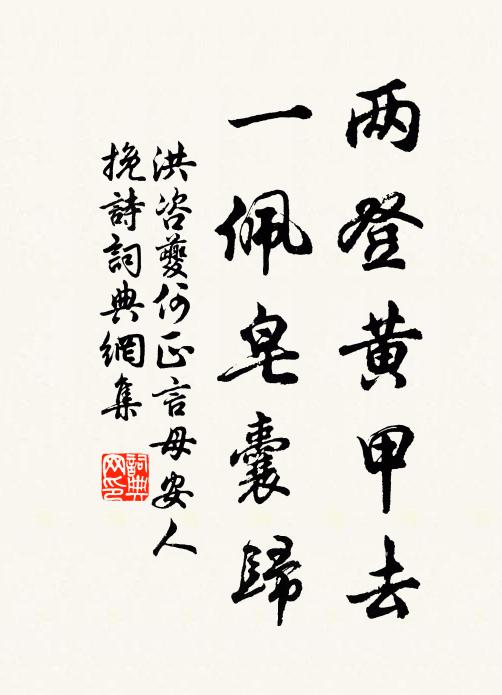 两登黄甲去
一佩皂囊歸
洪咨夔何正言母安人
挽詩詞典網集
詞典
网印